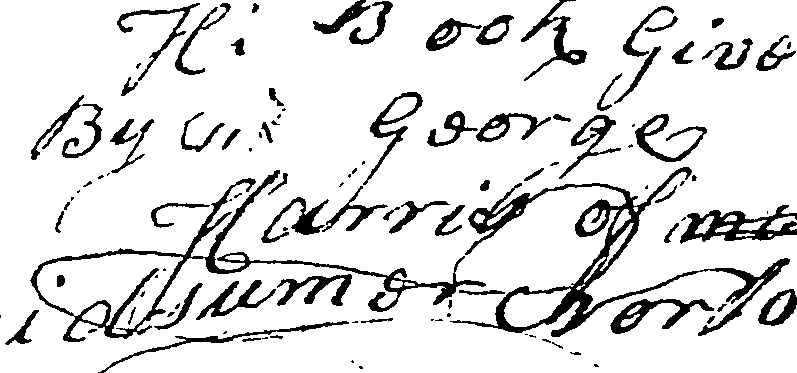 Hi Book Give
By George
Harris of
idsumer Norto